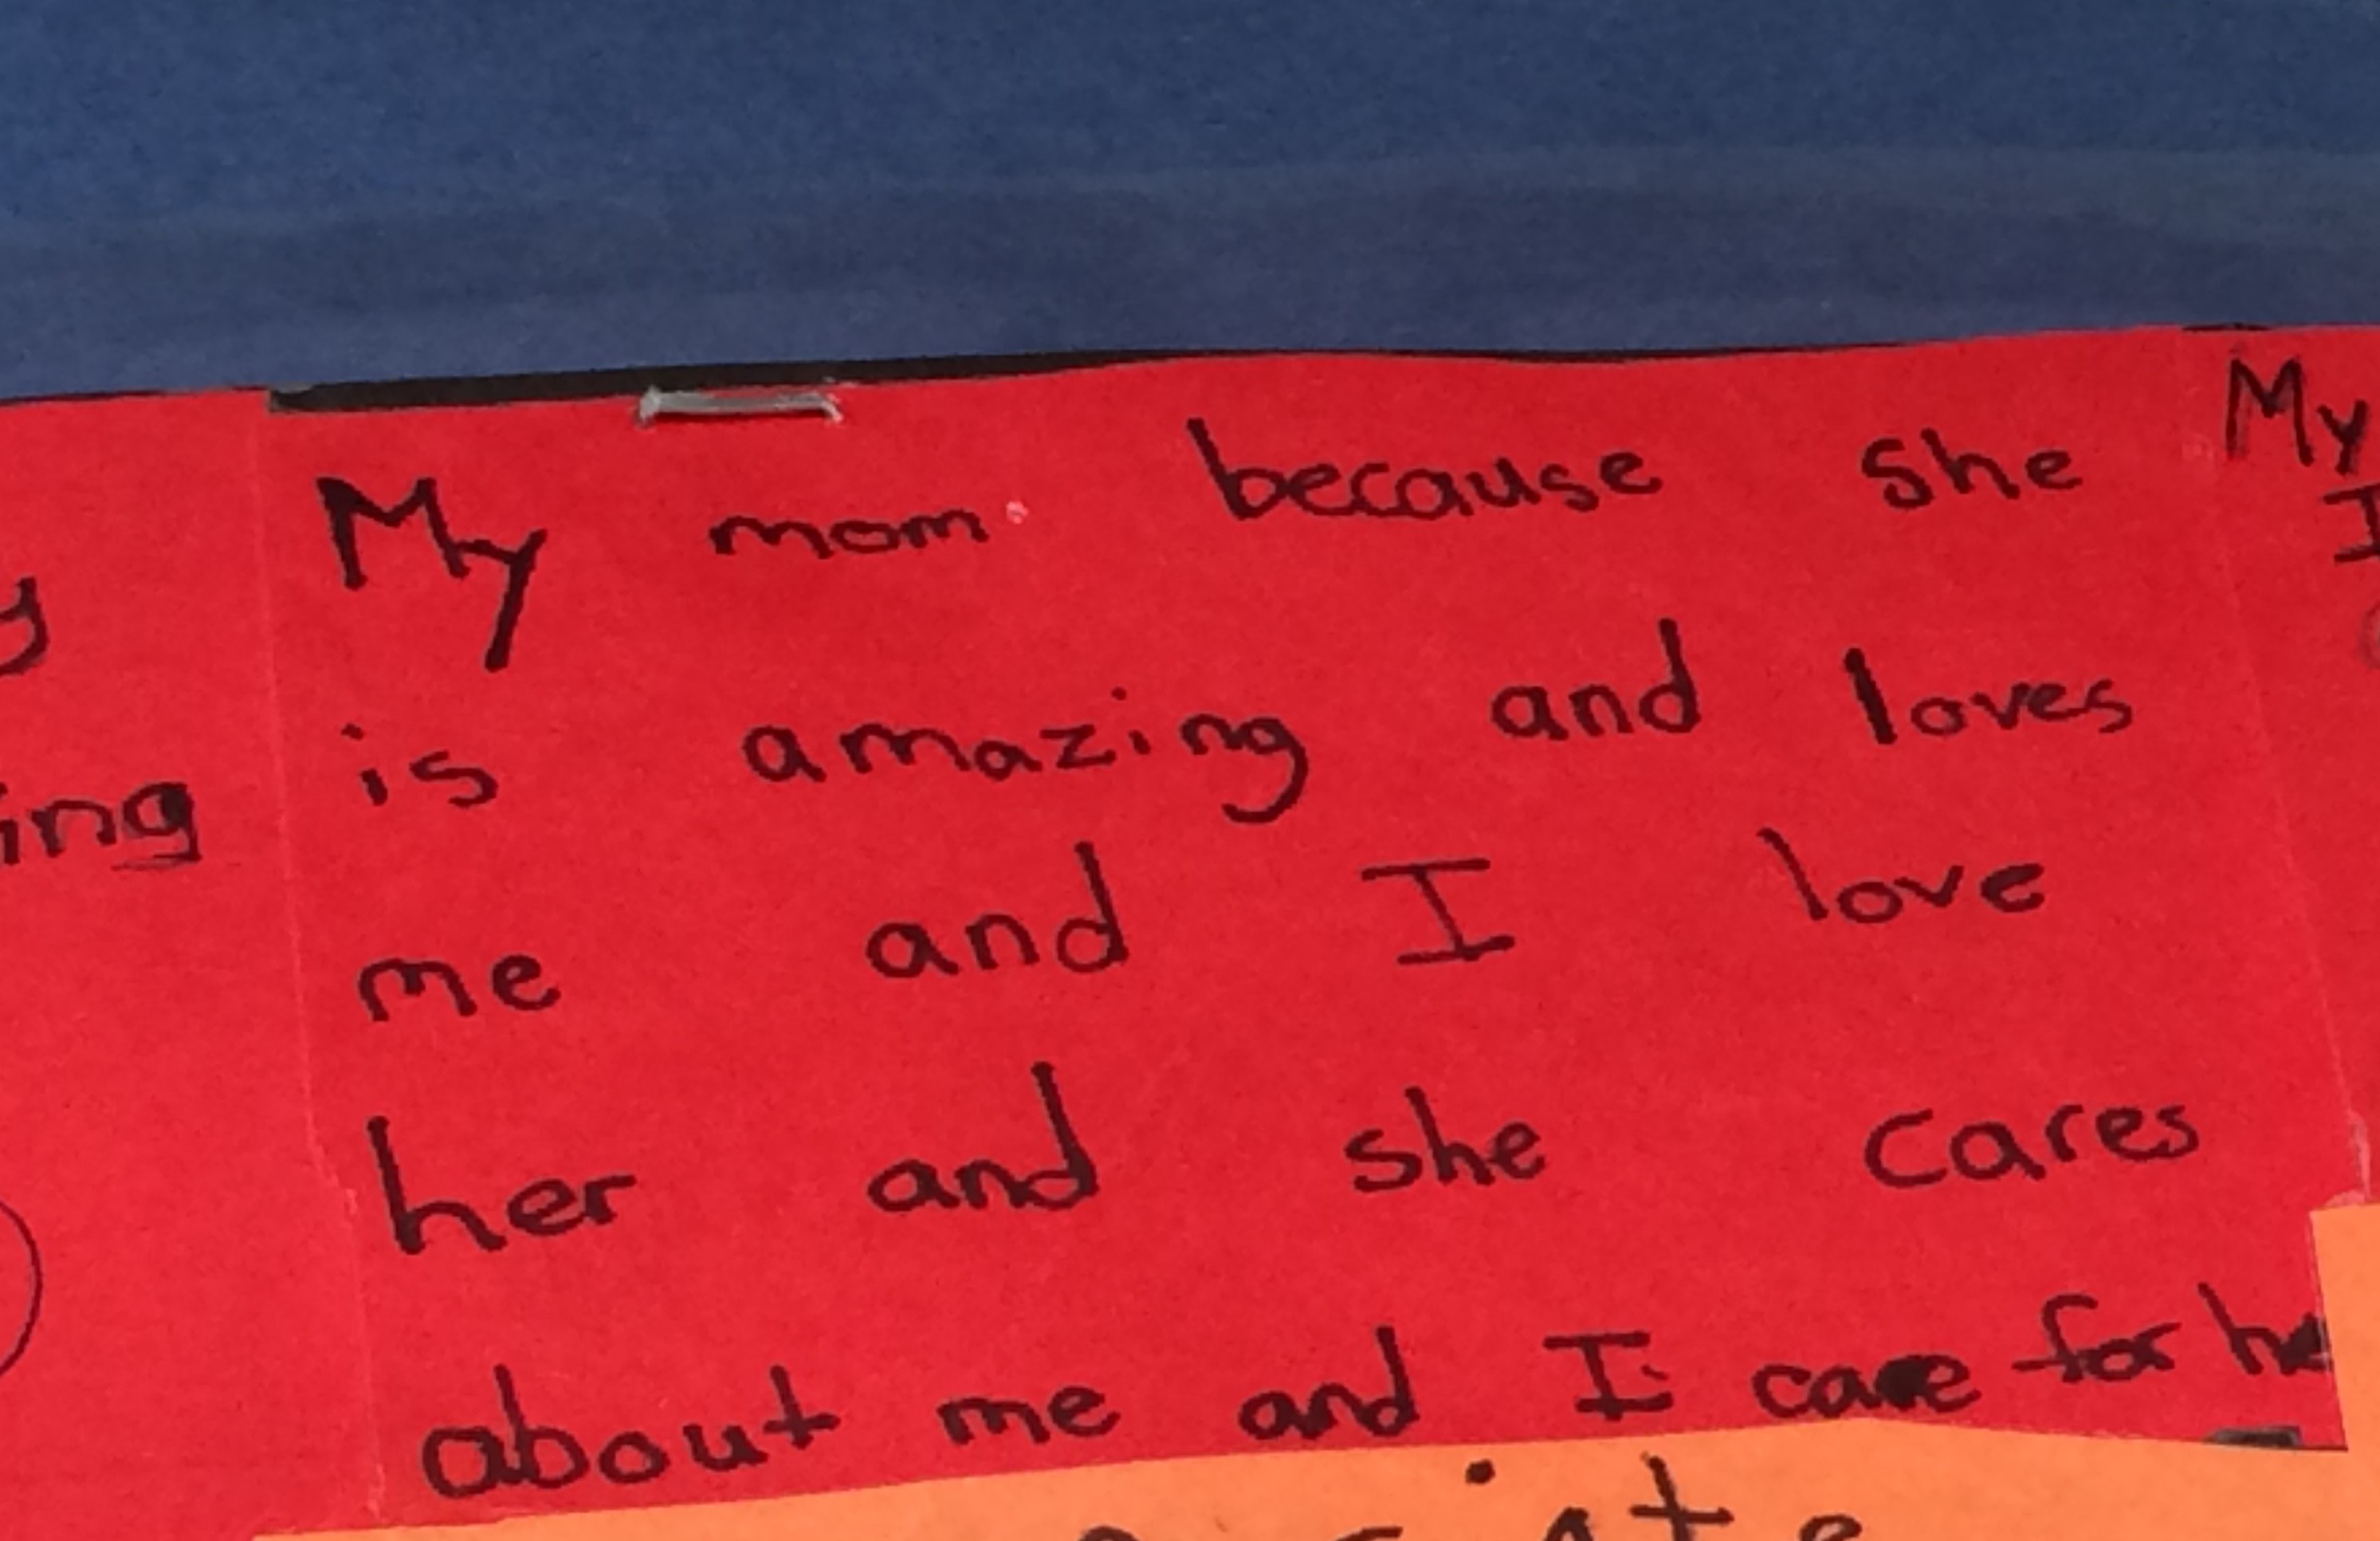 My mom because she
is amazing and loves
me and I love
her and she cares
about me and I care for he
My
I
y
ing